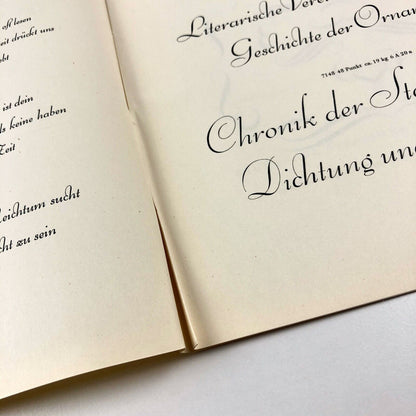 oft lesen
eit drückt uns
bt
ist dein
ls keine haben
Zeit
Reichtum sucht
cht zu sein
Literarische Verei
Geschichte der Orna
7148 48 Punkt ca. 19 kg 6 A 20 a
Chronik der Sta
Dichtung un